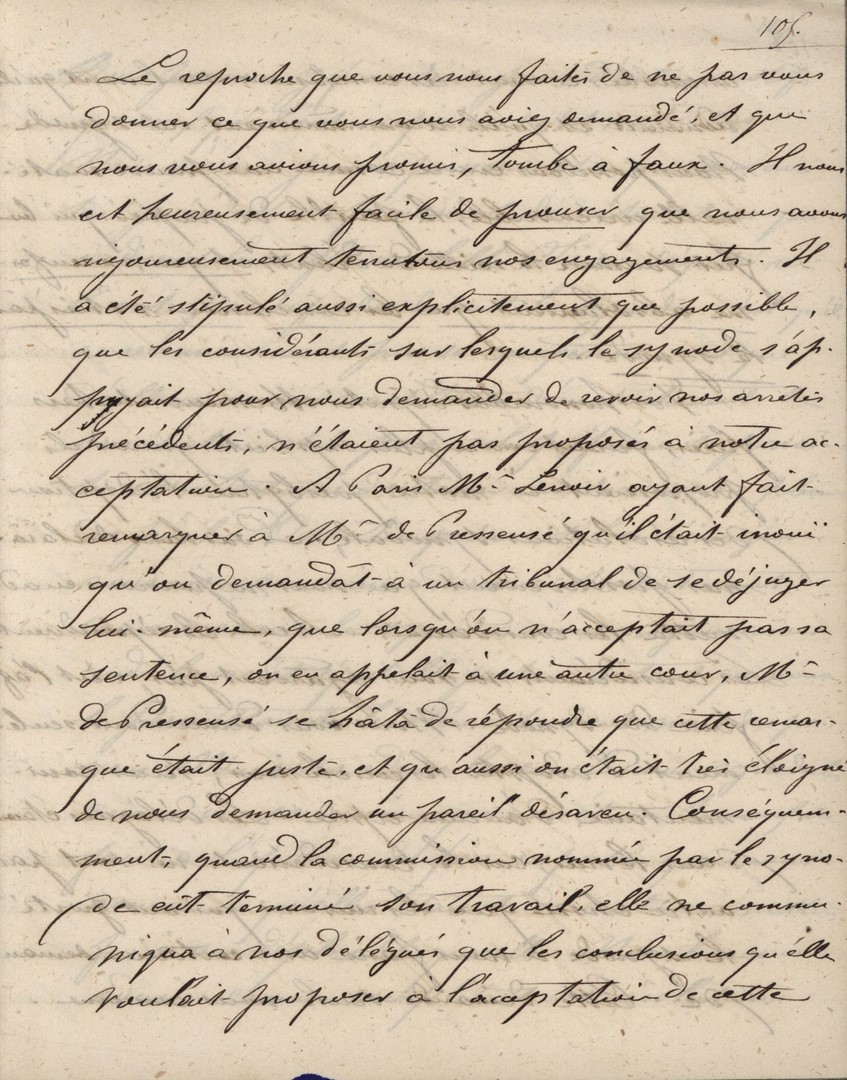 105.
Le reproche que vous nous faites de ne pas vous
donner ce que vous nous aviez demandé, et que
nous vous avions promis, tombe à faux. Il nous
est heureusement facile de prouver que nous avons
rigoureusement tenu tous nos engagements. Il
a été stipulé aussi explicitement que possible,
que les considérants sur lesquels le synode s'ap-
puyait pour nous demander de revoir nos arrêtés
précédents, n'étaient pas proposés à notre ac-
ceptation. A Paris Mr Lenoir ayant fait
remarquer à Mr de Pressensé qu'il était inouï
qu'on demandât à un tribunal de se déjuger
lui-même, que lorsqu'on n'acceptait pas sa
sentence, on en appelait à une autre cour, Mr
de Pressensé se hâta de répondre que cette remar-
que était juste, et qu'aussi on était très éloigné
de nous demander un pareil désaveu. Conséquem-
ment, quand la commission nommée par le syno-
de eut terminé son travail, elle ne commu-
niqua à nos délégués que les conclusions qu'elle
voulait proposer à l'acceptation de cette